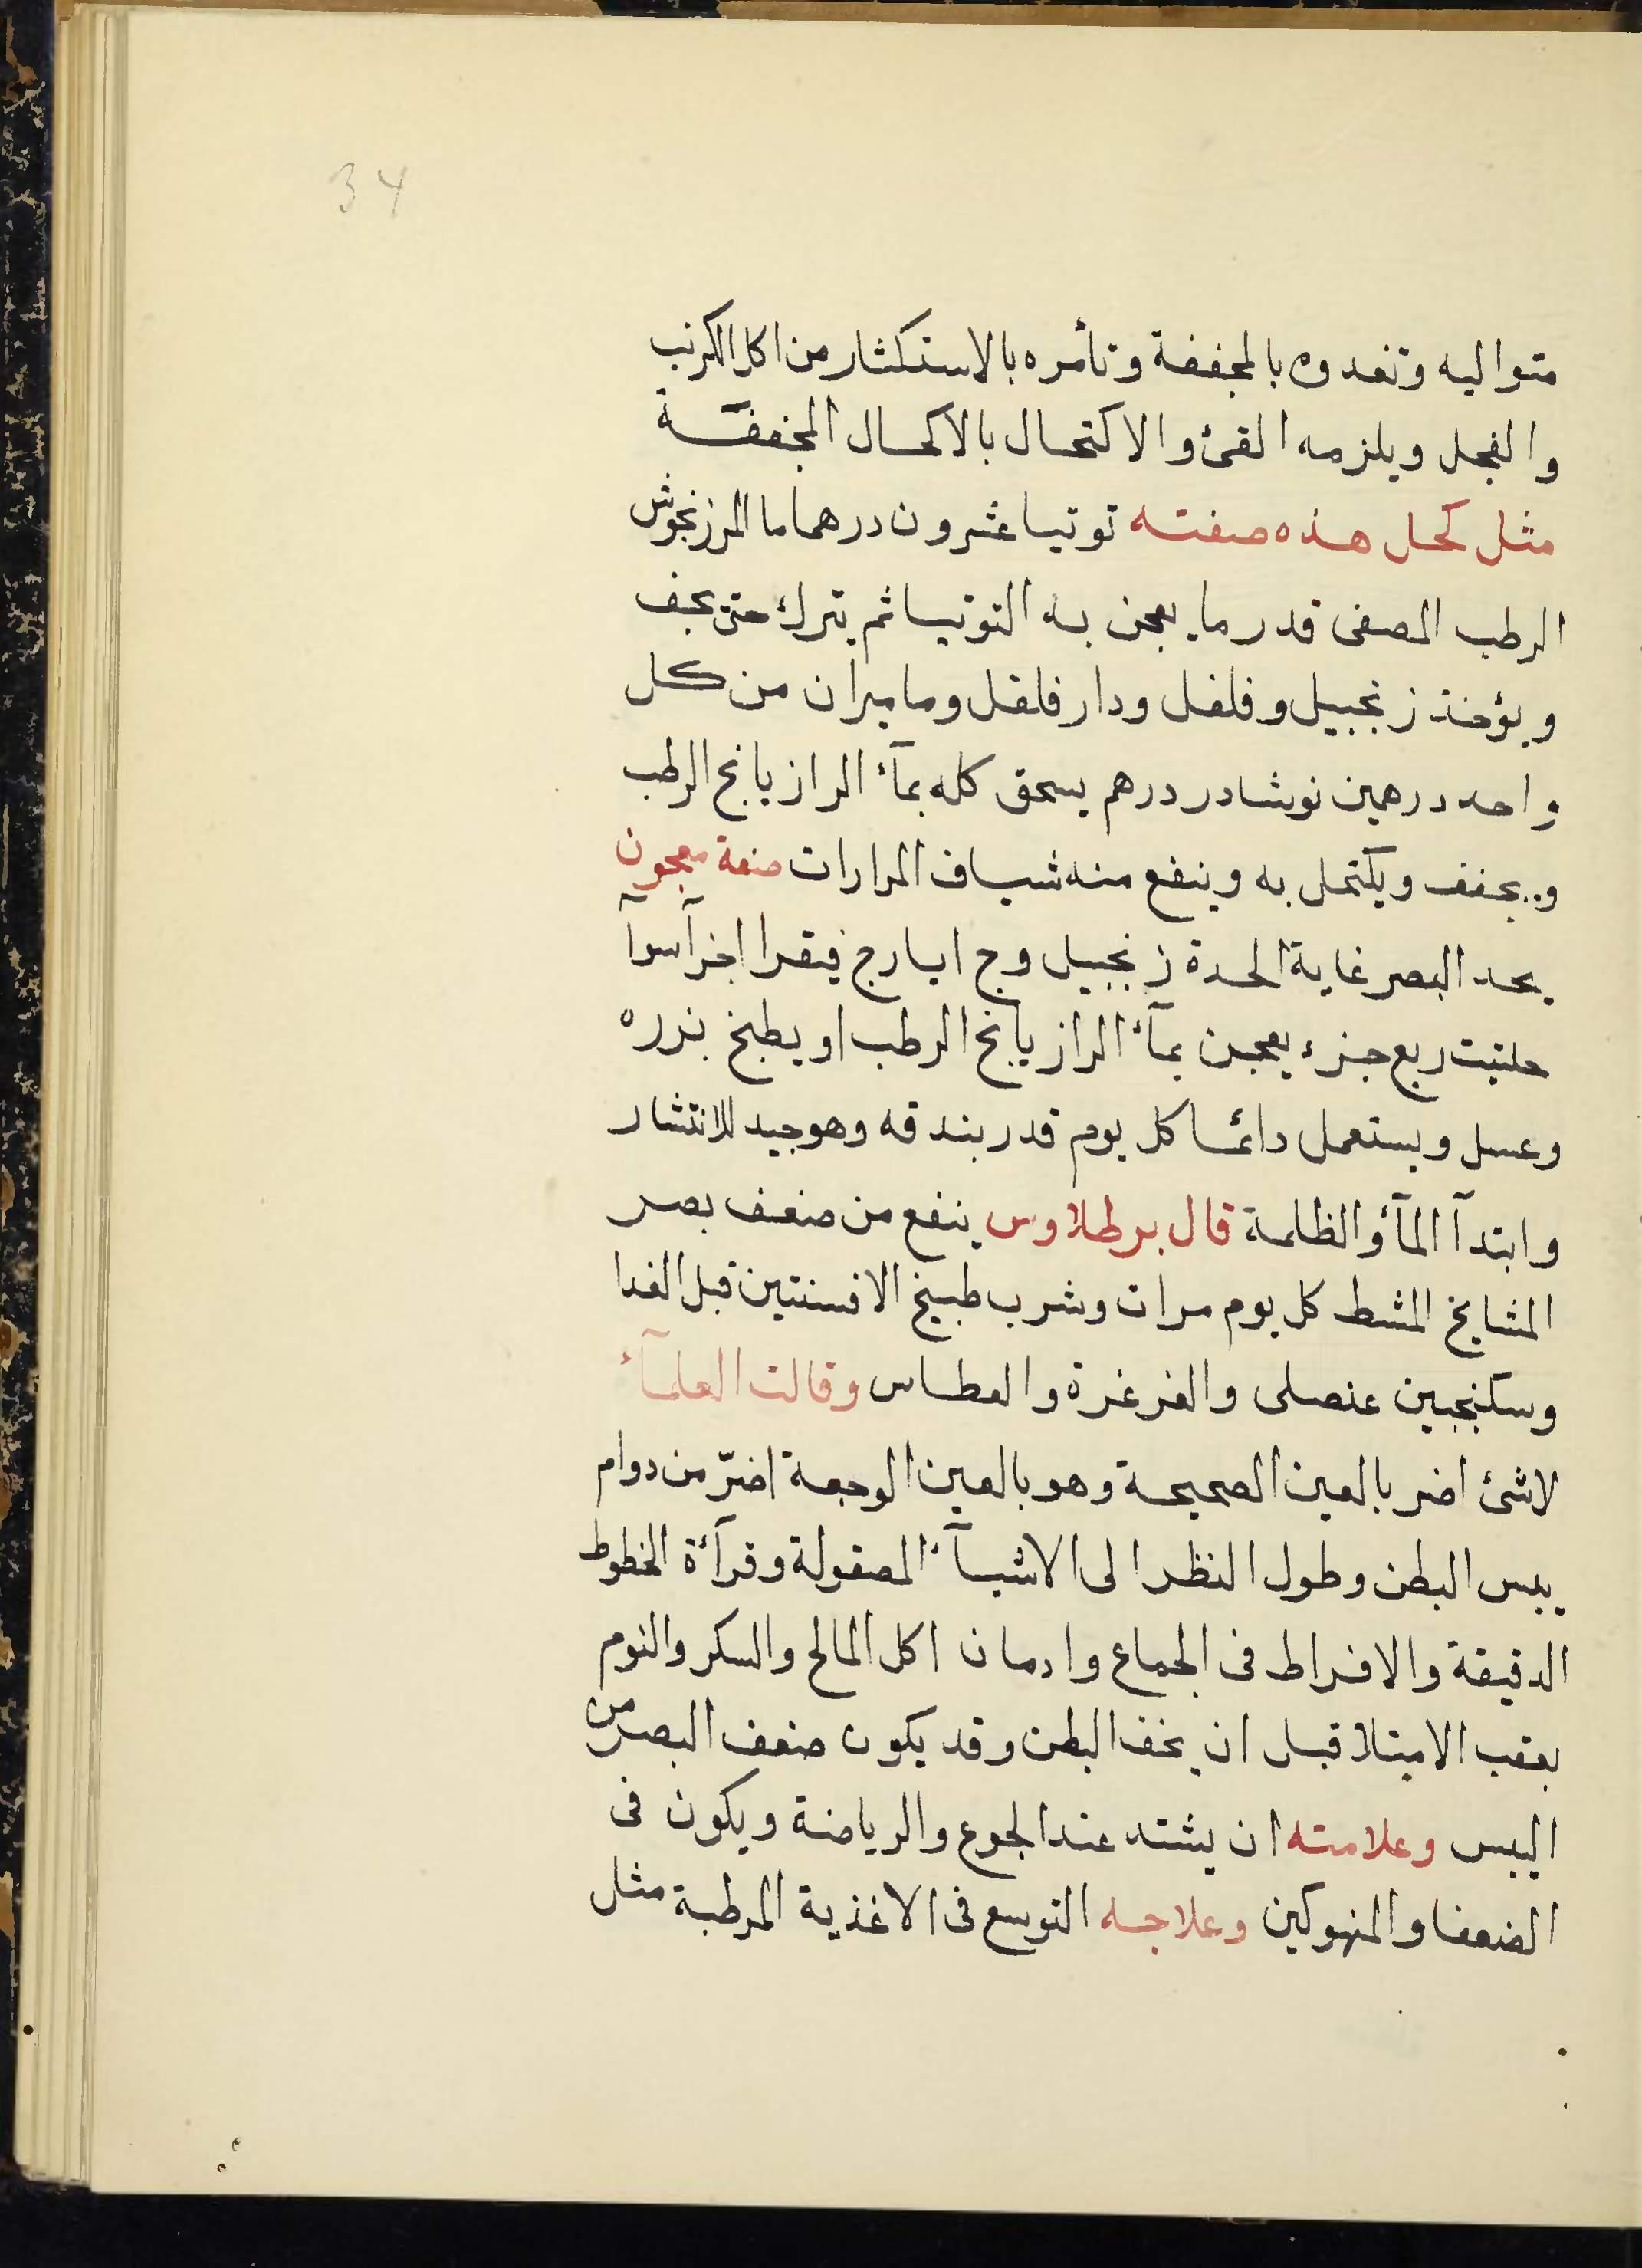 34
متواليه وتغدوه بالمجففة وتأمره بالاستكثار من اكل الكرنب
والفجل ويلزمه القئ والاكتحال بالاكحال المجففة
مثل كحل هذه صفته توتيا عشرون درهما ما المرزنجوش
الرطب المصفى قدر ما يعجن به التوتيا ثم يترك حتى يجف
ويؤخذ زنجبيل وفلفل ودارفلفل وماميران من كل
واحد درهمين نوشادر درهم يسحق كله بمآء الرازيانج الرطب
ويجفف ويكتحل به وينفع منه شياف المرارات صنعة معجون
يحد البصر غاية الحدة زنجبيل وج ايارج فيقرا اجزآ سوآ
حلتيت ربع جزء يعجن بمآء الرازيانج الرطب او يطبخ بزره
وعسل ويستعمل دائما كل يوم قدر بندقه وهو جيد للانتشار
وابتدآ المآء والظلمة قال برطلاوس ينفع من ضعف بصر
المشايخ المشط كل يوم مرات وشرب طبيخ الافسنتين قبل الغدا
وسكنجبين عنصلى والغرغرة والعطاس وقالت العلمآء
لاشئ اضر بالعين الصحيحة وهو بالعين الوجعة اضرّ من دوام
يبس البطن وطول النظر الى الاشيآء المصقولة وقرآءة الخطوط
الدقيقة والافراط فى الجماع وادمان اكل المالح والسكر والنوم
بعقب الامتلا قبل ان يخف البطن وقد يكون ضعف البصر من
اليبس وعلامته ان يشتد عند الجوع والرياضة ويكون فى
الضعفا والمنهوكين وعلاجه التوسع فى الاغذية المرطبة مثل